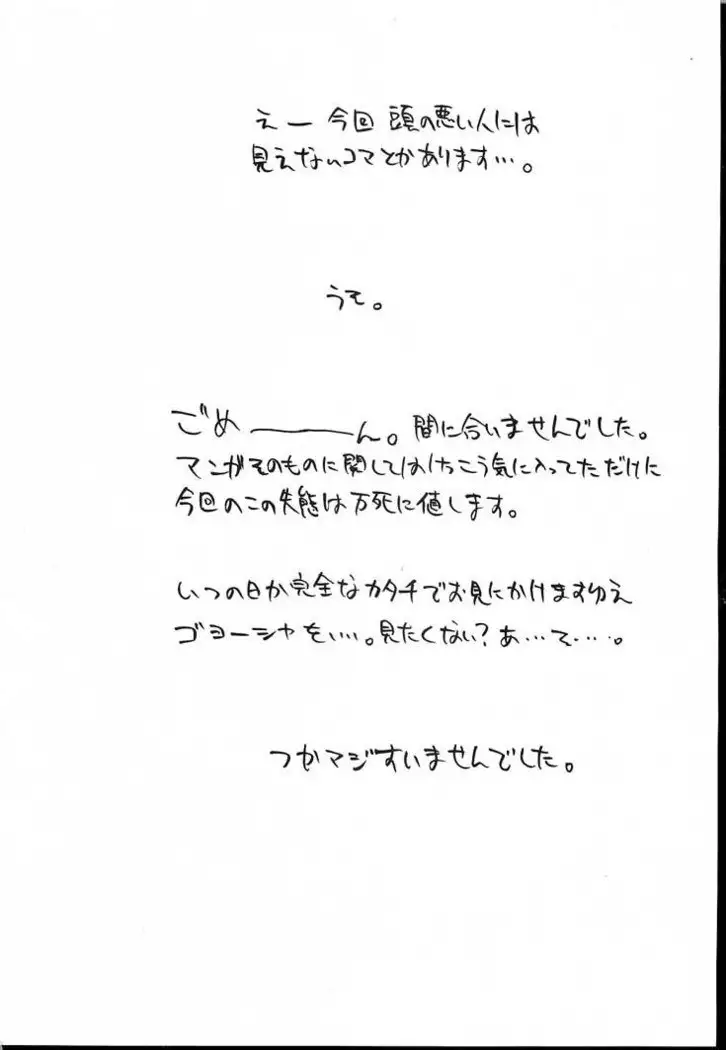 えー 今回 頭の悪い人には
見えないコマとかあります…。
うそ。
ごめーーん。間に合いませんでした。
マンガそのものに関してはけっこう気に入ってただけに
今回のこの失態は万死に値します。
いつの日か完全なカタチでお見にかけますゆえ
ゴヨーシャを‥‥。見たくない?あ…そ…。
つかマジすいませんでした。